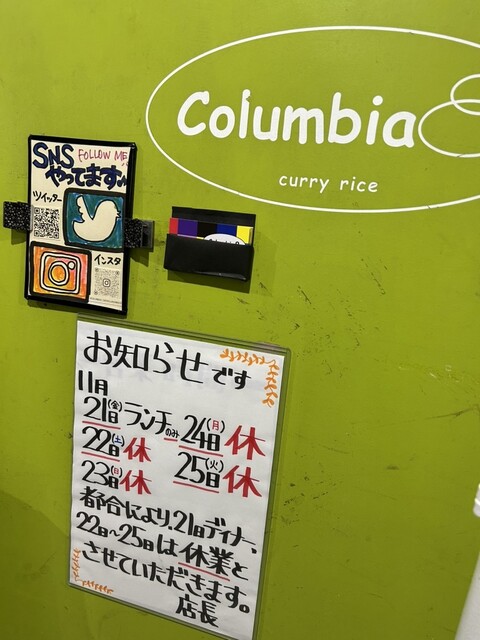 Columbia
curry rice
SNS FOLLOW ME
やってます
ツイッター
インスタ
お知らせです
11月
21日(金)ランチのみ 24日(月)休
22日(土)休 25日(火)休
23日(日)休
都合により、21日ディナー、
22日~25日は休業と
させていただきます。
店長